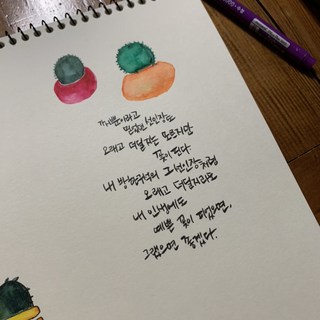 가시뿐이라고
믿었던 선인장는
오래고 더딜지는 모르지만
꽃이 핀다.
내 방한구석의 그 선인장처럼
오래고 더딜지라도
내 인생에도
예쁜 꽃이 피었으면,
그랬으면 좋겠다.